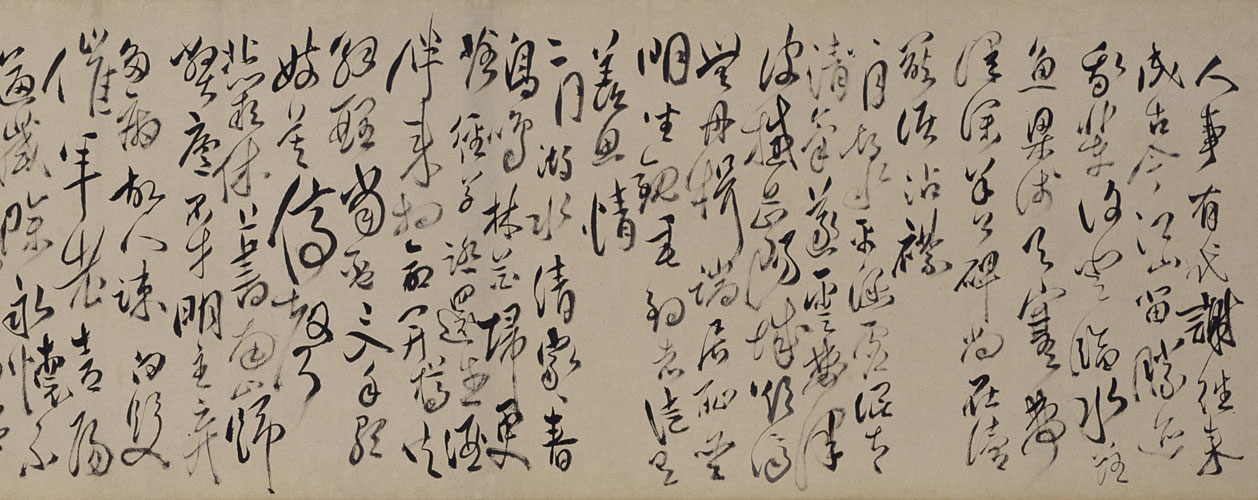 人事有代謝往來
成古今江山留勝迹
我輩復登臨水落
魚梁淺天寒夢
澤深羊公碑尚在讀
罷淚沾襟
八月湖水平涵虛混太
清氣蒸雲夢澤
波撼岳陽城欲濟
無舟楫端居恥聖
明坐觀垂釣者徒有
羨魚情
二月湖水清家家春
鳥鳴林花掃更
落徑草踏還生酒
伴來相命開尊共
解酲當杯已入手歌
妓莫停聲
北闕休上書南山歸
弊廬不才明主棄
多病故人疎白髮
催年老青陽
逼歲除永懷愁不